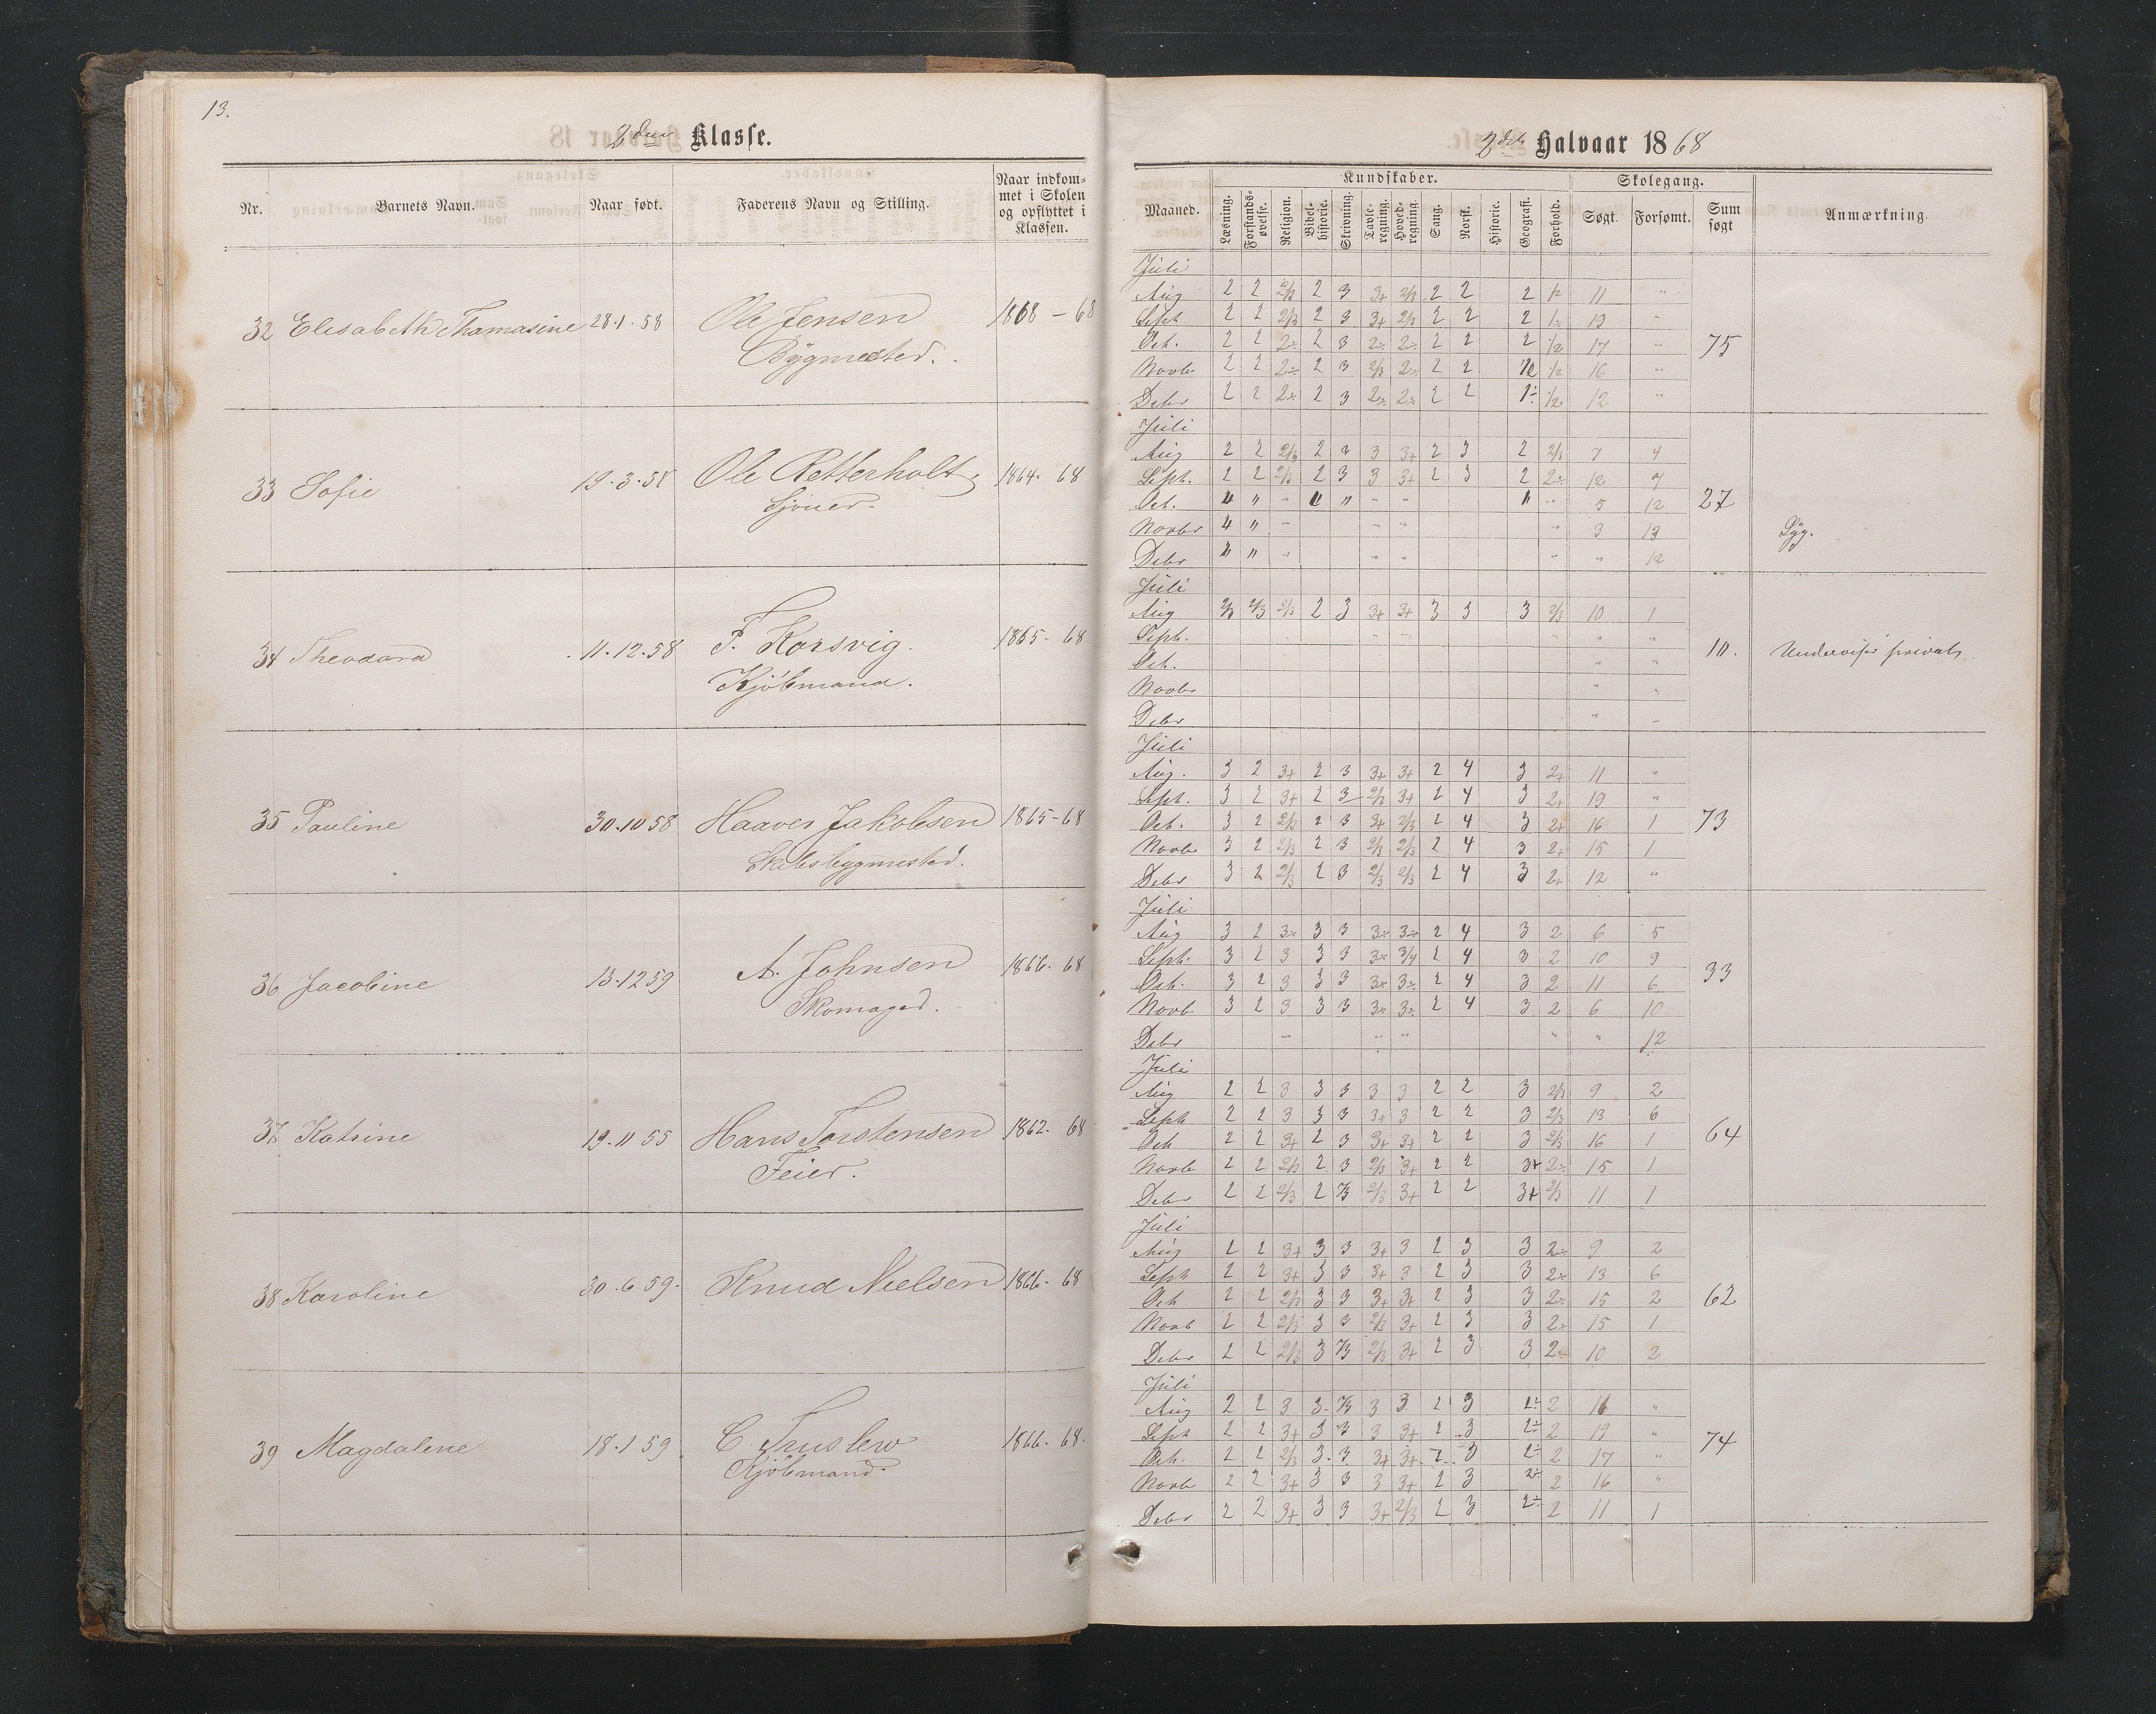 13.
2den Klasse.
Nr.
Barnets Navn.
Naar født.
Faderens Navn og Stilling.
Naar indkom-
met i Skolen
og opflyttet i
Klassen.
32 Elisabeth Thamasine 28.1.58 Ole Jensen 1868 - 68
Bygmester.
33 Sofie 19.3.58 Ole Retterholt, 1864. 68
Sjouer.
34 Theodora 11.12.58 F. Korsvig. 1865- 68
Kjöbmand.
35 Pauline 30.10 58 Haaver Jakobsen 1865-68
Skibsbygmester.
36 Jacobine 13.12 59 A. Johnsen 1866. 68
Skomager.
37 Katrine 19.11 55 Hans Torstensen 1862. 68
Feier.
38 Karoline 30.6 59. Knud Nielsen 1866. 68
39 Magdalene 18.1 59 C. Truslew 1866. 68.
Kjöbmand.
2det Halvaar 1868
Kundskaber.
Skolegang.
Maaned.
Læsning.
Forstands-
øvelse.
Religion.
Bibel-
historie.
Skrivning.
Tavle-
regning.
Hoved-
regning.
Sang.
Norsk.
Historie.
Geografi.
Forhold.
Søgt.
Forsømt.
Sum
søgt
Anmærkning.
Juli
Aug 2 2 2/3 2 3 3+ 2/3 2 2 2 1/2 11 "
Sept 2 2 2/3 2 3 3+ 2/3 2 2 2 1÷ 19 "
Oct. 2 2 2÷ 2 3 2÷ 2÷ 2 2 2 1/2 17 " 75
Novbr 2 2 2÷ 2 3 2/3 2÷ 2 2 1/2 1/2 16 "
Debr 2 2 2÷ 2 3 2÷ 2÷ 2 2 1÷ 1/2 12 "
Juli
Aug 2 2 2/3 2 3 3 3+ 2 3 2 2/3 7 4
Sept. 2 2 2/3 2 3 3 3+ 2 3 2 2÷ 12 7
Oct. " " " " " " " " " 5 12 27
Novbr " " " " " " 3 13 Syg.
Debr " " " " " " " 12
Juli
Aug 2/3 2/3 2/3 2 3 3+ 3+ 3 3 3 2/3 10 1
Sept. " "
Oct. " " 10. Undervises privat
Novbr " "
Debr " "
Juli
Aug. 3 2 3+ 2 3 3+ 3+ 2 4 3 2+ 11 "
Sept. 3 2 3+ 2 3 2/3 3+ 2 4 3 2+ 19 "
Oct. 3 2 2/3 2 3 3+ 2/3 2 4 3 2+ 16 1 73
Novbr 3 2 2/3 2 3 2/3 2/3 2 4 3 2+ 15 1
Debr 3 2 2/3 2 3 2/3 2/3 2 4 3 2+ 12 "
Juli
Aug 3 2 3÷ 3 3 3÷ 3÷ 2 4 3 2 6 5
Sept. 3 2 3 3 3 3÷ 3/4 2 4 3 2 10 9
Oct. 3 2 3 3 3 3÷ 3÷ 2 4 3 2 11 6 33
Novb 3 2 3 3 3 3÷ 3÷ 2 4 3 2 6 10
Debr " " " " " 12
Juli
Aug 2 2 3 3 3 3 3 2 2 3 2/3 9 2
Sept 2 2 3 3 3 3+ 3 2 2 3 2/3 13 6
Oct 2 2 3+ 2 3 3+ 3+ 2 2 3 2/3 16 1 64
Novb 2 2 2/3 2 3 2/3 3+ 2 2 3+ 2÷ 15 1
Debr 2 2 2/3 2 2/3 2/3 3+ 2 2 3+ 2/3 11 1
Juli
Aug 2 2 3+ 3 3 3+ 3 2 3 3 2÷ 9 2
Sept 2 2 3+ 3 3 3+ 3 2 3 3 2÷ 13 6
Oct 2 2 2/3 3 3 3+ 3+ 2 3 3 2÷ 15 2 62
Novb 2 2 2/3 3 3 2/3 3+ 2 3 3 2÷ 15 1
Debr 2 2 2/3 3 2/3 2/3 3+ 2 3 3 2÷ 10 2
Juli
Aug 2 2 3 3 2/3 3 3 2 3 2÷ 2 11 "
Sept 2 2 3+ 3 3 3 3+ 2 3 2÷ 2 19 "
Oct. 2 2 2/3 3 3 3+ 3+ 2 3 2÷ 2 17 " 74
Novb 2 2 3+ 3 3 3 3+ 2 3 2÷ 2 16 "
Debr 2 2 3+ 3 3 3+ 2/3 2 3 2÷ 2 11 1